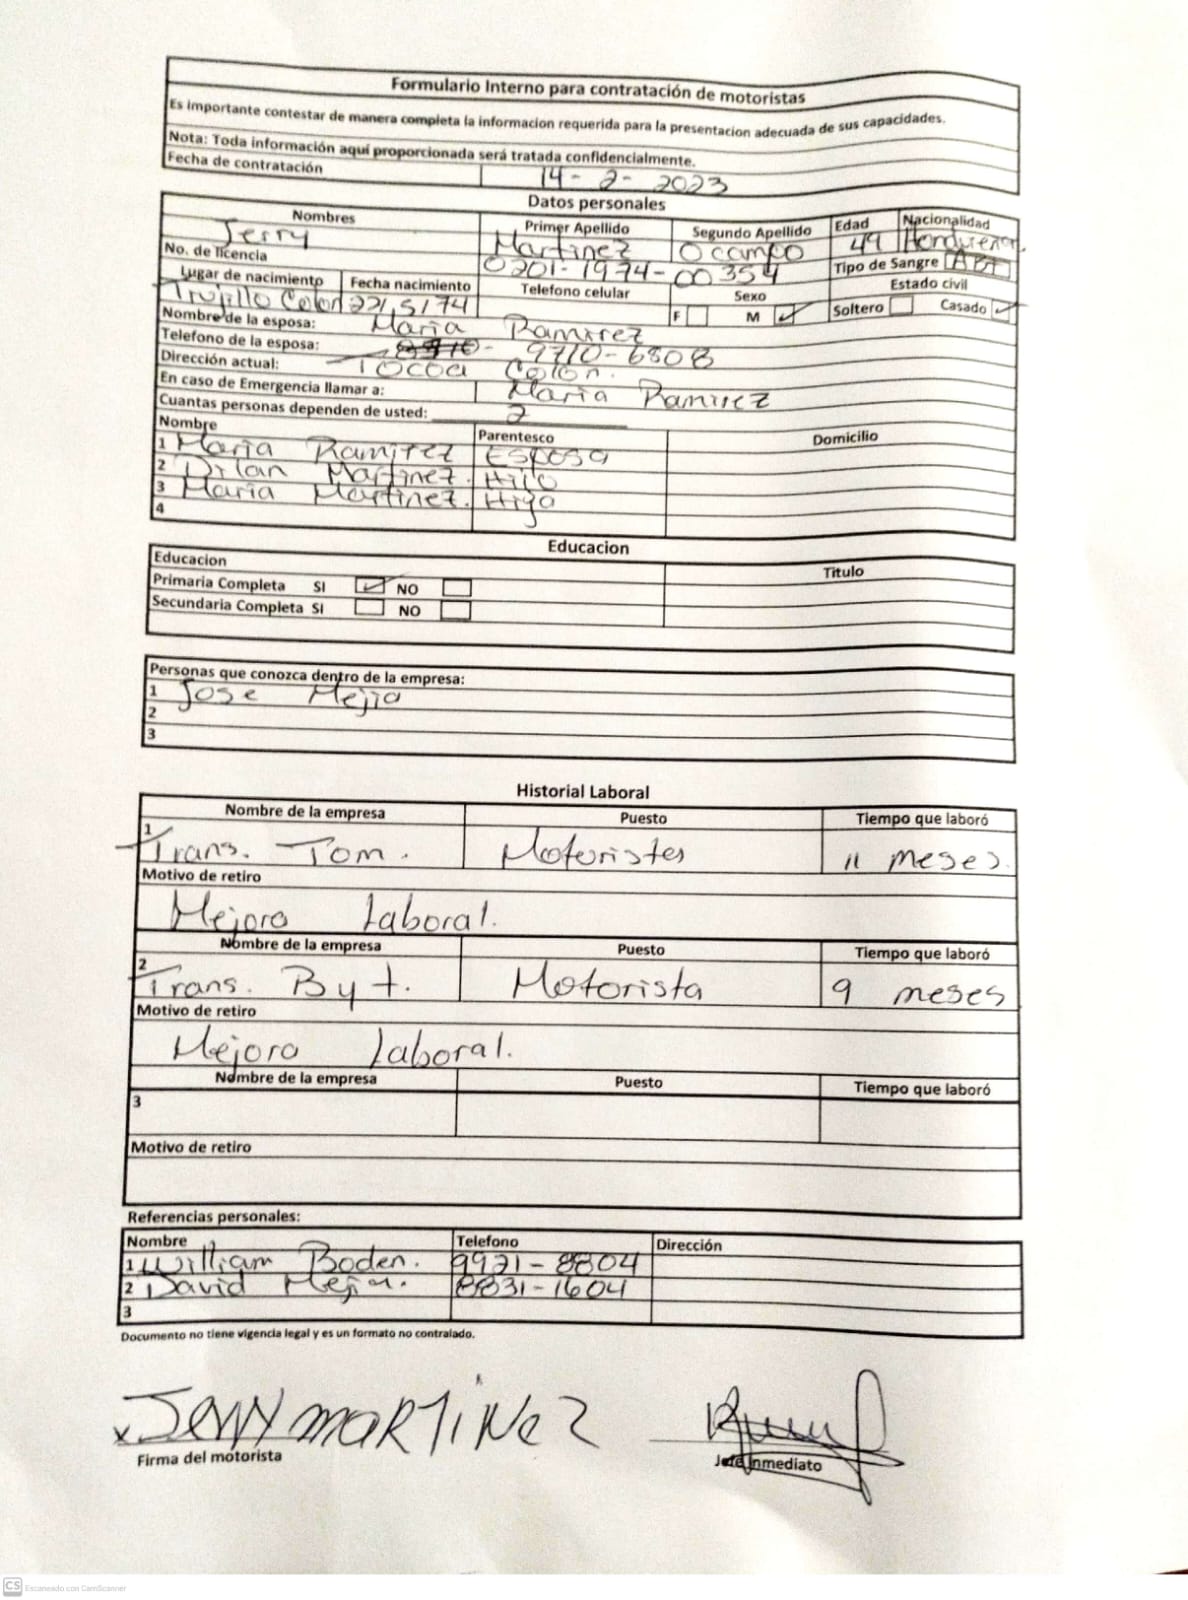 Formulario Interno para contratación de motoristas
Es importante contestar de manera completa la informacion requerida para la presentacion adecuada de sus capacidades.
Nota: Toda información aquí proporcionada será tratada confidencialmente.
Fecha de contratación 14-2-2023
Datos personales
Nombres Primer Apellido Segundo Apellido Edad Nacionalidad
Jerry Martinez Ocampo 49 Hondureña
No. de licencia 0201-1974-00354 Tipo de Sangre
Lugar de nacimiento Fecha nacimiento Telefono celular Sexo Estado civil
Trujillo Colon 22/5/74 F M Soltero Casado
Nombre de la esposa: Maria Ramirez
Telefono de la esposa: 9710-6808
Dirección actual: Tocoa Colon.
En caso de Emergencia llamar a: Maria Ramirez
Cuantas personas dependen de usted: 2
Nombre Parentesco Domicilio
1 Maria Ramirez Esposa
2 Dilan Martinez. Hijo
3 Maria Martinez. Hija
4
Educacion
Educacion Titulo
Primaria Completa SI NO
Secundaria Completa SI NO
Personas que conozca dentro de la empresa:
1 Jose Mejia
2
3
Historial Laboral
Nombre de la empresa Puesto Tiempo que laboró
1 Trans. Tom. Motoristes 11 meses.
Motivo de retiro
Mejora Laboral.
Nombre de la empresa Puesto Tiempo que laboró
2 Trans. Byt. Motorista 9 meses
Motivo de retiro
Mejora Laboral.
Nombre de la empresa Puesto Tiempo que laboró
3
Motivo de retiro
Referencias personales:
Nombre Telefono Dirección
1 William Boden. 9921-8804
2 David Mejia. 8831-1604
3
Documento no tiene vigencia legal y es un formato no contralado.
x Jerry MARTiNez
Firma del motorista Jefe Inmediato
CS Escaneado con CamScanner